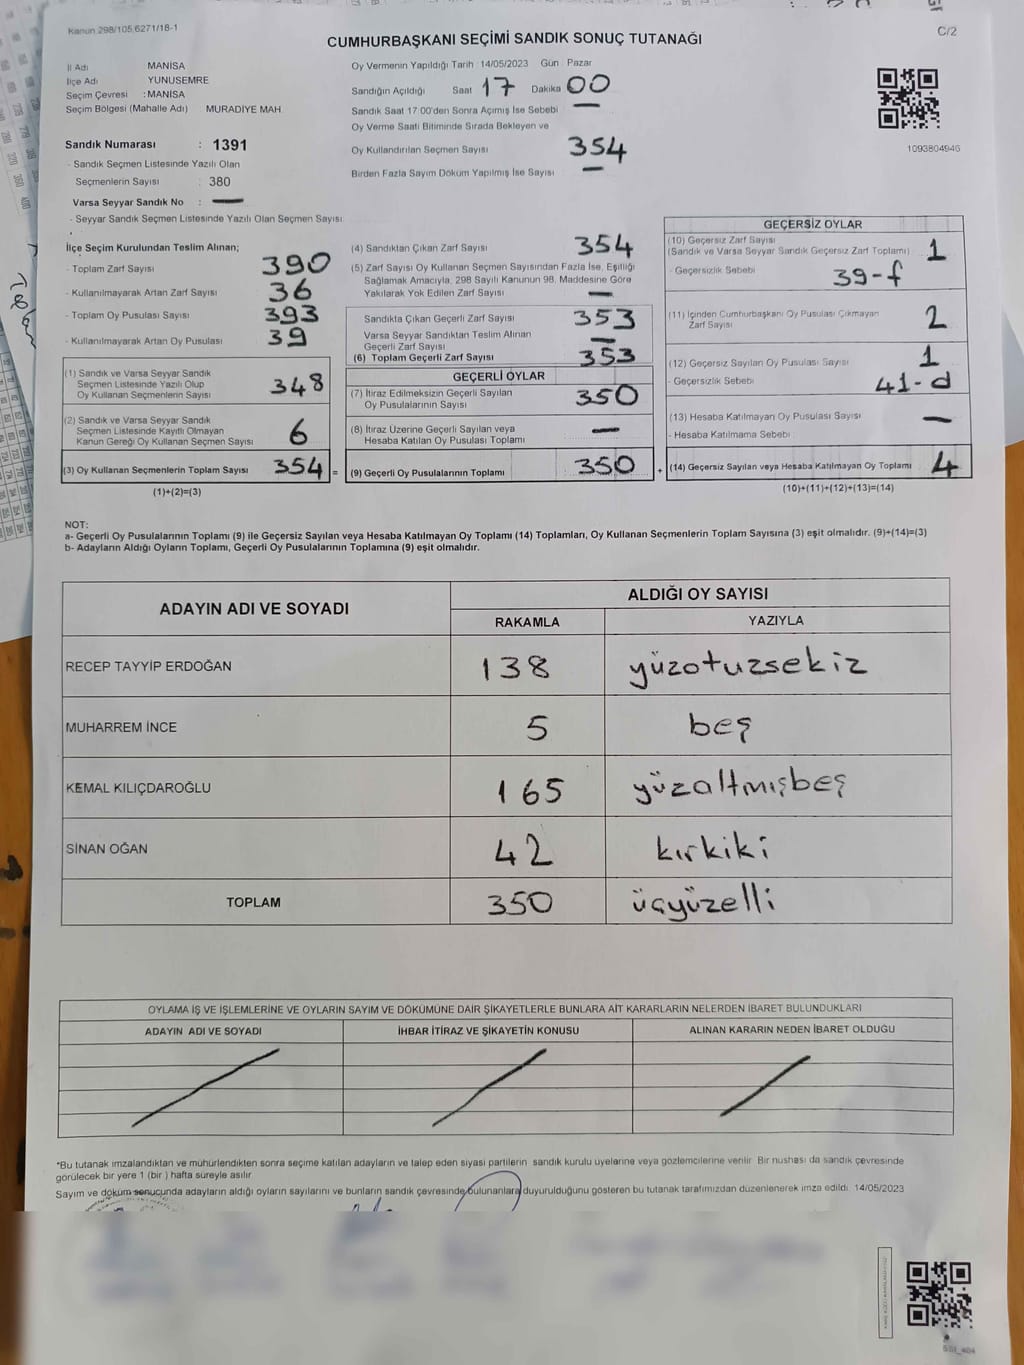 Kanun 298/105,6271/18-1
C/2
CUMHURBAŞKANI SEÇİMİ SANDIK SONUÇ TUTANAĞI
İl Adı MANİSA
İlçe Adı YUNUSEMRE
Seçim Çevresi : MANİSA
Seçim Bölgesi (Mahalle Adı) MURADİYE MAH.
Sandık Numarası : 1391
- Sandık Seçmen Listesinde Yazılı Olan
Seçmenlerin Sayısı : 380
Varsa Seyyar Sandık No : —
- Seyyar Sandık Seçmen Listesinde Yazılı Olan Seçmen Sayısı:
Oy Vermenin Yapıldığı Tarih : 14/05/2023 Gün : Pazar
Sandığın Açıldığı Saat 17 Dakika 00
Sandık Saat 17:00'den Sonra Açımış İse Sebebi —
Oy Verme Saati Bitiminde Sırada Bekleyen ve
Oy Kullandırılan Seçmen Sayısı 354
Birden Fazla Sayım Döküm Yapılmış İse Sayısı —
1093804946
İlçe Seçim Kurulundan Teslim Alınan;
- Toplam Zarf Sayısı 390
- Kullanılmayarak Artan Zarf Sayısı 36
- Toplam Oy Pusulası Sayısı 393
- Kullanılmayarak Artan Oy Pusulası 39
(1) Sandık ve Varsa Seyyar Sandık
Seçmen Listesinde Yazılı Olup
Oy Kullanan Seçmenlerin Sayısı 348
(2) Sandık ve Varsa Seyyar Sandık
Seçmen Listesinde Kayıtlı Olmayan
Kanun Gereği Oy Kullanan Seçmen Sayısı 6
(3) Oy Kullanan Seçmenlerin Toplam Sayısı 354 =
(1)+(2)=(3)
(4) Sandıktan Çıkan Zarf Sayısı 354
(5) Zarf Sayısı Oy Kullanan Seçmen Sayısından Fazla İse, Eşitliği
Sağlamak Amacıyla, 298 Sayılı Kanunun 98. Maddesine Göre
Yakılarak Yok Edilen Zarf Sayısı —
Sandıkta Çıkan Geçerli Zarf Sayısı 353
Varsa Seyyar Sandıktan Teslim Alınan
Geçerli Zarf Sayısı —
(6) Toplam Geçerli Zarf Sayısı 353
GEÇERLİ OYLAR
(7) İtiraz Edilmeksizin Geçerli Sayılan
Oy Pusulalarının Sayısı 350
(8) İtiraz Üzerine Geçerli Sayılan veya
Hesaba Katılan Oy Pusulası Toplamı —
(9) Geçerli Oy Pusulalarının Toplamı 350 +
GEÇERSİZ OYLAR
(10) Geçersiz Zarf Sayısı
(Sandık ve Varsa Seyyar Sandık Geçersiz Zarf Toplamı) 1
- Geçersizlik Sebebi 39-f
(11) İçinden Cumhurbaşkanı Oy Pusulası Çıkmayan
Zarf Sayısı 2
(12) Geçersiz Sayılan Oy Pusulası Sayısı 1
- Geçersizlik Sebebi 41-d
(13) Hesaba Katılmayan Oy Pusulası Sayısı —
- Hesaba Katılmama Sebebi
(14) Geçersiz Sayılan veya Hesaba Katılmayan Oy Toplamı 4
(10)+(11)+(12)+(13)=(14)
NOT:
a- Geçerli Oy Pusulalarının Toplamı (9) ile Geçersiz Sayılan veya Hesaba Katılmayan Oy Toplamı (14) Toplamları, Oy Kullanan Seçmenlerin Toplam Sayısına (3) eşit olmalıdır. (9)+(14)=(3)
b- Adayların Aldığı Oyların Toplamı, Geçerli Oy Pusulalarının Toplamına (9) eşit olmalıdır.
ADAYIN ADI VE SOYADI ALDIĞI OY SAYISI
RAKAMLA YAZIYLA
RECEP TAYYİP ERDOĞAN 138 yüzotuzsekiz
MUHARREM İNCE 5 beş
KEMAL KILIÇDAROĞLU 165 yüzaltmışbeş
SİNAN OĞAN 42 kırkiki
TOPLAM 350 üçyüzelli
OYLAMA İŞ VE İŞLEMLERİNE VE OYLARIN SAYIM VE DÖKÜMÜNE DAİR ŞİKAYETLERLE BUNLARA AİT KARARLARIN NELERDEN İBARET BULUNDUKLARI
ADAYIN ADI VE SOYADI İHBAR İTİRAZ VE ŞİKAYETİN KONUSU ALINAN KARARIN NEDEN İBARET OLDUĞU
*Bu tutanak imzalandıktan ve mühürlendikten sonra seçime katılan adayların ve talep eden siyasi partilerin sandık kurulu üyelerine veya gözlemcilerine verilir. Bir nushası da sandık çevresinde
görülecek bir yere 1 (bir ) hafta süreyle asılır.
Sayım ve döküm sonucunda adayların aldığı oyların sayılarını ve bunların sandık çevresinde bulunanlara duyurulduğunu gösteren bu tutanak tarafımızdan düzenlenerek imza edildi. 14/05/2023